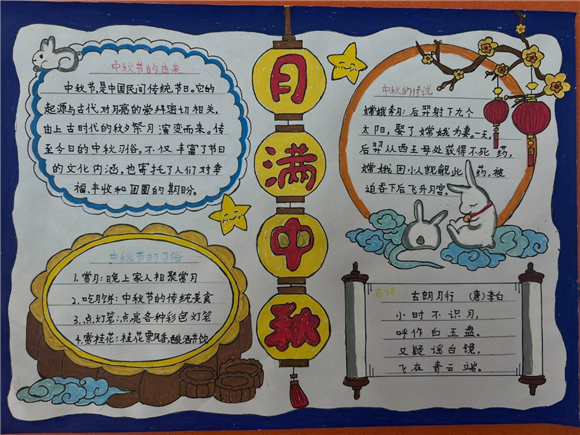 中秋节的由来
中秋节,是中国民间传统节日。它的
起源与古代对月亮的崇拜密切相关,
由上古时代的秋夕祭月演变而来。传
至今日的中秋习俗,不仅丰富了节日
的文化内涵,也寄托了人们对幸
福、丰收和团圆的期盼。
月满中秋
中秋的传说
嫦娥奔月:后羿射下九个
太阳,娶了嫦娥为妻。一天,
后羿从西王母处获得不死药,
嫦娥因小人觊觎此药,被
迫吞下后飞升月宫。
中秋节的习俗
1.赏月:晚上家人相聚赏月
2.吃月饼:中秋节的传统美食
3.点灯笼:点亮各种彩色灯笼
4.赏桂花:桂花飘香,酿酒茶饮
古诗
古朗月行 (唐)李白
小时不识月,
呼作白玉盘。
又疑瑶台镜,
飞在青云端。